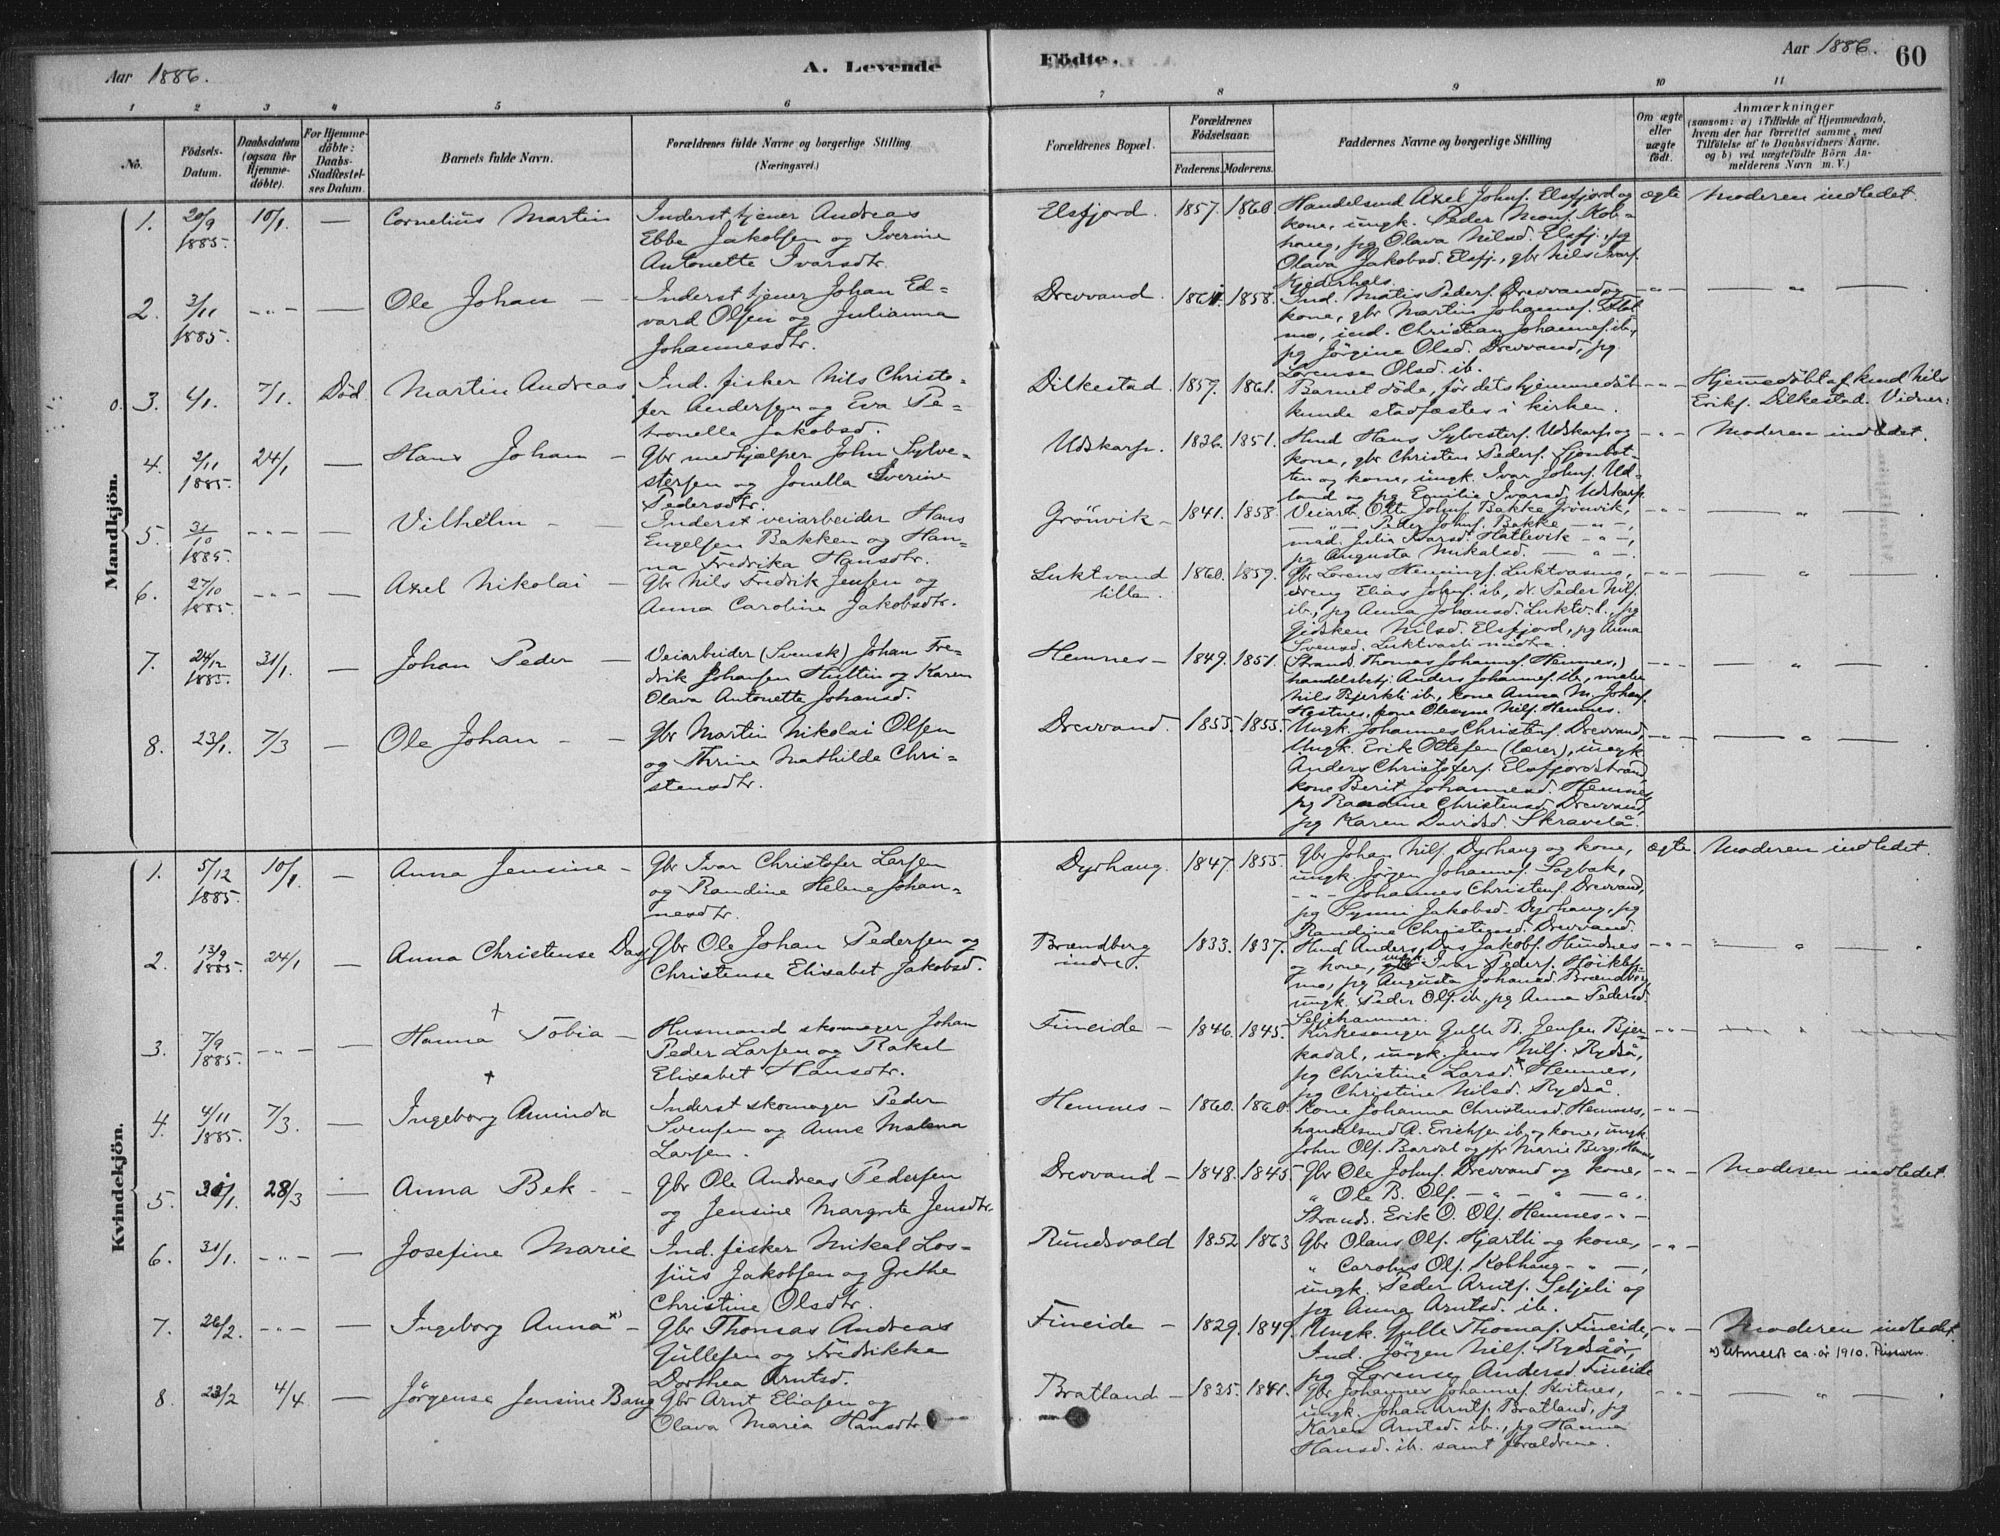 Aar 1886.
A. Levende
Födte.
Aar 1886.
60
1 2 3 4 5 6 7 8 9 10 11
No.
Födsels-Datum.
Daabsdatum (ogsaa for Hjemmedöbte).
For Hjemmedöbte: Daabs-Stadfæstelses Datum.
Barnets fulde Navn.
Forældrenes fulde Navne og borgerlige Stilling (Næringsvei.)
Forældrenes Bopæl.
Forældrenes Födselsaar.
Faderens. Moderens.
Faddernes Navne og borgerlige Stilling
Om ægte eller uægte födt.
Anmærkninger
(saasom: a) i Tilfælde af Hjemmedaab, hvem der har forrettet samme, med Tilföielse af to Daabsvidners Navne, og b) ved uægtefödte Börn Anmelderens Navn m. V.)
Mandkjön.
1. 20/9 1885. 10/1. — Cornelius Martin
Inderst tjener Andreas
Ebbe Jakobsen og Iverine
Antonette Ivarsdtr.
Elsfjord. 1857. 1860.
Handelsmd Axel Johns. Elsfjord og
kone, ungk. Peder Mons. Kob-
haug, pg Olava Nilsd. Elsfj., pg
Olava Jakobsd. Elsfj., gbr Nils Ivars.
Kjerhals.
ægte Moderen indledet.
2. 3/11 1885. -"- — Ole Johan —
Inderst tjener Johan Ed-
vard Olsen og Julianna
Johannesdtr.
Drevvand. 1861. 1858.
Ind. Matis Peders. Drevvand og
kone, gbr Martin Johannes. Slet-
mo, ind. Christian Johannes. ib.,
pg Jörgine Olsd. Drevvand, pg
Lorense Olsd. ib.
-"- — " —
0. 3. 4/1. 7/1. Död. Martin Andreas
Ind. fisker Nils Christo-
fer Andersen og Eva Pe-
tronelle Jakobsd.
Dilkestad. 1857. 1861.
Barnet döde, för dets hjemmedåb
kunde stadfæstes i kirken.
-"- Hjemmedöbt af kmd Nils
Eriks. Dilkestad. Vidner:
4. 2/11 1885. 24/1 — Hans Johan —
Gbr medhjælper John Sylve-
stersen og Jonella Sverine
Pedersdtr.
Udskarp. 1836. 1851.
Hmd Hans Sylvesters. Udskarp og
kone, gbr Christen Peders. Sjonbot-
ten og kone, ungk. Ivar Johns. Ud-
land og pg Emilie Ivarsd. Udskarp.
-"- Moderen indledet.
5. 31/10 1885. -"- — Vilhelm —
Inderst veiarbeider Hans
Engelsen Bakken og Han-
na Fredrika Hansdtr.
Grönvik — 1841. 1858.
Veiarb. Otte Johns. Bakke Grönvik,
—"— Peder Johns. Bakke —"—,
mad. Julia Ivarsd. Hatlevik —"—,
pg Augusta Mikalsd. —"—.
-"- — " —
6. 27/10 1885. -"- — Axel Nikolai —
Gbr Nils Fredrik Jensen og
Anna Caroline Jakobsdtr.
Luktvand lille. 1860. 1859.
Gbr Lorens Hemings. Luktvasmo,
dreng Elias Johns. ib, dr. Peder Nils.
ib., pg Anna Johansd. Luktv. l., pg
Gidsken Nilsd. Elsfjord, pg Anna
Svensd. Luktvasli midtre.
-"- — " —
7. 24/12 1885. 31/1. — Johan Peder —
Veiarbeider (Svensk) Johan Fre-
drik Johansen Huttin og Karen
Olava Antonette Johansd.
Hemnes — 1849. 1851.
(Strands. Thomas Johannes. Hemnes,)
handelsbetj. Anders Johannes. ib., maler
Nils Bjerkli ib, kone Anna M. Johans.
Hestnes, kone Olesyne Nils. Hemnes.
-"- — " —
8. 23/1. 7/3 — Ole Johan —
Gbr Martin Nikolai Olsen
og Thrine Mathilde Chri-
stensdtr.
Drevvand. 1853. 1855.
Ungk. Johannes Christens. Drevvand,
Ungk. Erik Ottesen (lærer), ungk.
Anders Christofers. Elsfjordstrand,
kone Berit Johannesd. Hemnes,
pg Randine Christensd. Drevvand,
pg Karen Davidsd. Skravelå.
-"- — " —
Kvindekjön.
1. 5/12 1885. 10/1. — Anna Jensine —
Gbr Ivar Christofer Larsen
og Randine Helene Johan-
nesdtr.
Dyrhaug. 1847. 1855.
Gbr Johan Nils. Dyrhaug og kone,
ungk. Jörgen Johannes. Sagbak,
-"- Johannes Christens. Drevvand,
pg Jakobsd. Dyrhaug, pg
Randine Christensd. Drevvand.
ægte. Moderen indledet.
2. 13/9 1885. 24/1 — Anna Christense Dag
Gbr Ole Johan Pedersen og
Christense Elisabet Jakobsd.
Brændberg indre. 1833. 1837.
Hmd Anders Das Jakobs. Hundnes
og kone, ungk Ivar Peders. Höiklep-
mo, pg Augusta Johansd. Brændberg,
ungk. Peder Ols. ib., pg Anna Pedersd.
Seljehammer.
-"- — " —
3. 7/9 1885. -"- — Hanna + Tobia —
Husmand skomager Johan
Peder Larsen og Rakel
Elisabet Hansdtr.
Fineide — 1846. 1845.
Kirkesanger Gulle B. Jensen Bjer-
kadal, ungk. Jens Nils. Rydså,
pg Christine Larsd. Hemnes,
pg Christine Nilsd. Rydså.
-"-
4. 4/11 1885. 7/3. — Ingeborg + Aminda
Inderst skomager Peder
Svensen og Anne Malena
Larsen.
Hemnes — 1860. 1860.
Kone Johanna Christensd. Hemnes,
handelsmd A. Erichsen ib. og kone, ungk.
John Ols. Bardal og jfr Marie Berg, Hemnes
-"-
5. 30/1. 28/3 — Anna Bek —
Gbr Ole Andreas Pedersen
og Jensine Margrete Jensdtr.
Drevvand — 1848. 1845.
Gbr Ole Johns. Drevvand og kone,
" Ole B. Ols. —"— " —"—.
Strands. Erik O. Ols. Hemnes -"-
-"- Moderen indledet.
6. 31/1. -"- — Josefine Marie
Ind. fisker Mikal Los-
sius Jakobsen og Grethe
Christine Olsdtr.
Rundsvold 1852. 1863
Gbr Olaus Ols. Hjartli og kone,
" Carolus Ols. Kobhaug -"- —,
ungk. Peder Arnts. Seljeli og
pg Anna Arntsd. ib.
-"-
7. 26/2. -"- — Ingeborg Anna x) —
Gbr Thomas Andreas
Gullesen og Fredrikke
Dorthea Arntsd.
Fineide — 1829. 1849.
Ungk. Gulle Thomas. Fineide,
Ind. Jörgen Nils. Rydsåör,
pg Lorense Andersd. Fineide
-"- Moderen indledet.
x) Utmeldt ca. år 1910.
8. 23/2 4/4 — Jörgense Jensine Bang
Gbr Arnt Eliasen og
Olava Maria Hansdtr.
Bratland — 1835. 1841.
Gbr Johannes Johannes. Hvitnes,
ungk. Johan Arnts. Bratland, pg
Karen Arntsd. ib., pg Hanna
Hansd. ib. samt forældrene.
-"- — " —